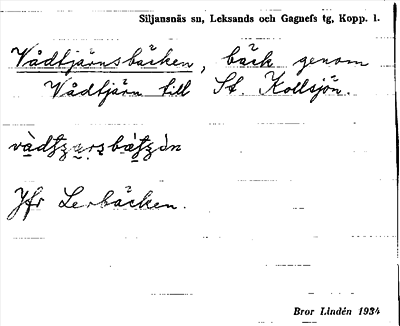 Siljansnäs sn, Leksands och Gagnefs tg, Kopp. l.
Vådtjärnsbäcken, bäck genom
Vådtjärn till St. Kollsjön.
Jfr Lerbäcken.
Bror Lindén 1934